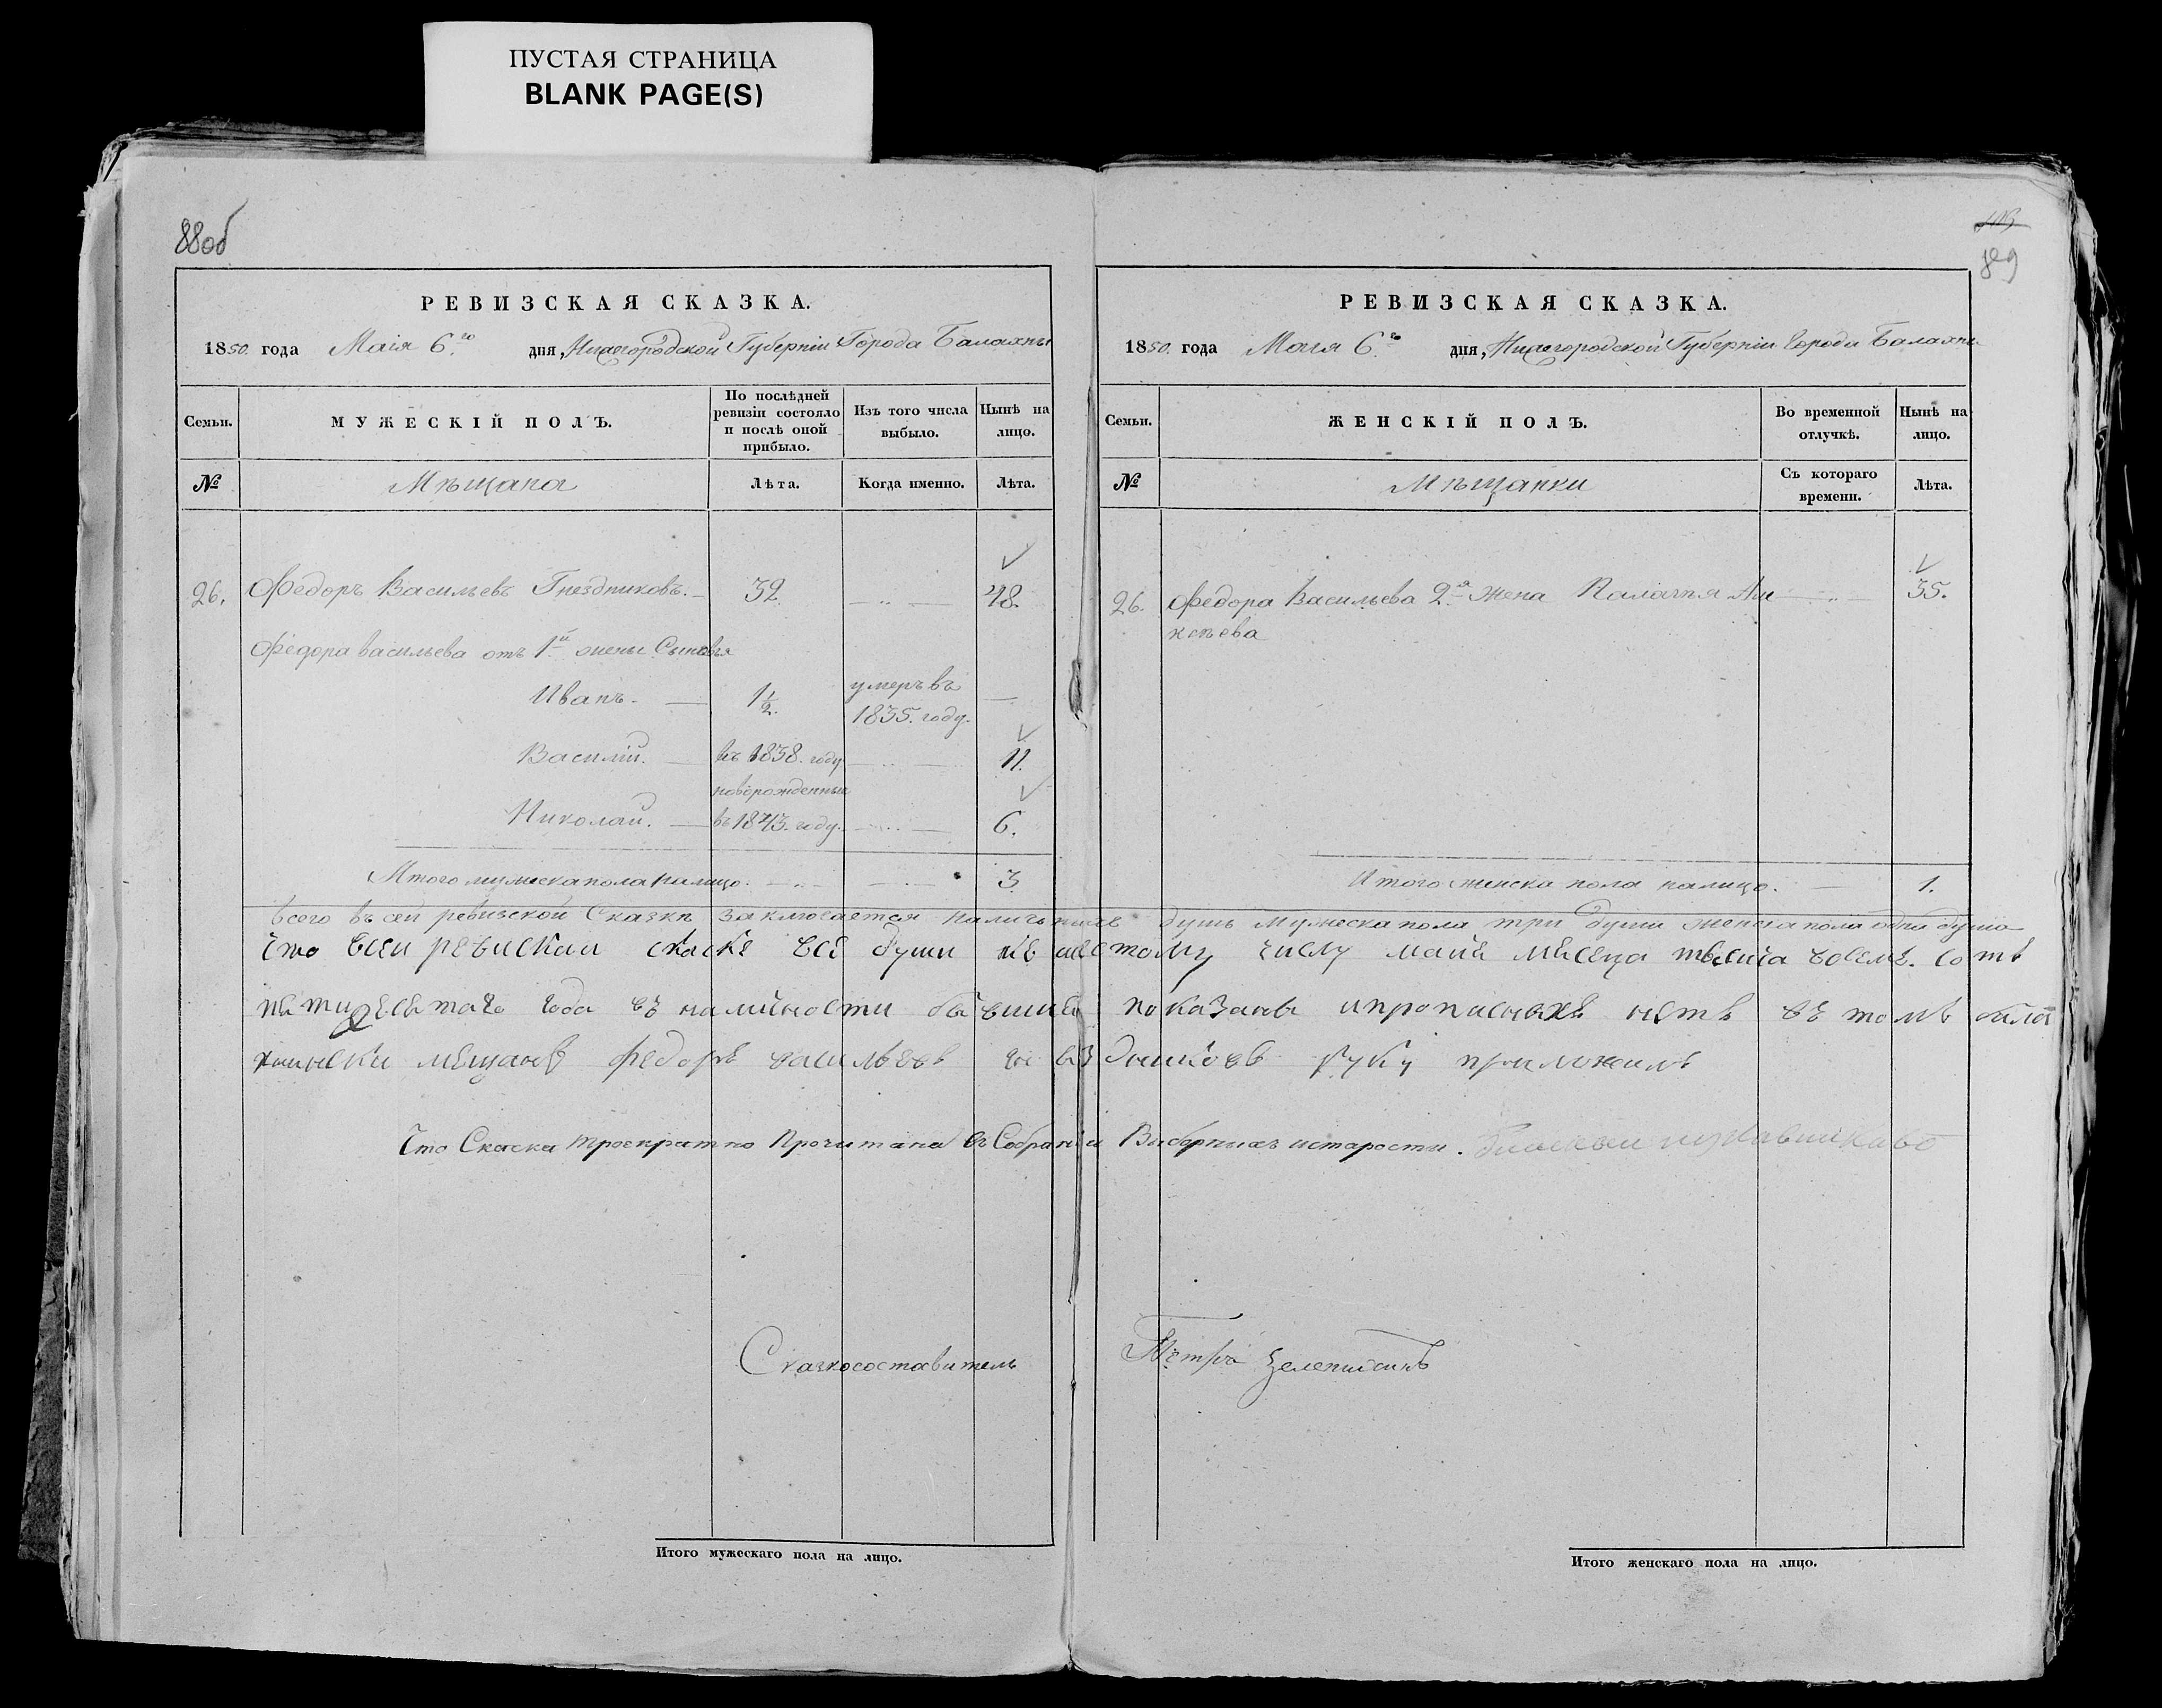 ПУСТАЯ СТРАНИЦА
BLANK PAGE(S)
88об
РЕВИЗСКАЯ СКАЗКА.
1850. года Маія 6.го дня, Нижегородской Губерніи Города Балахны
Семьи.
МУЖЕСКІЙ ПОЛЪ.
По послѣдней ревизіи состояло и послѣ оной прибыло.
Изъ того числа выбыло.
Нынѣ на лицо.
№
Мѣщана
Лѣта.
Когда именно.
Лѣта.
26. Федоръ Васильевъ Гнездниковъ. 32. 48.
Федора васильева отъ 1й жены Сыновья
Иванъ. 1½. умеръ въ 1835. году.
Василій. въ 1838. году 11.
новорожденный
Николай. въ 1843. году. 6.
Итого мужеска пола налицо. 3.
РЕВИЗСКАЯ СКАЗКА.
1850. года Маія 6.го дня, Нижегородской Губерніи Города Балахны
Семьи.
ЖЕНСКІЙ ПОЛЪ.
Во временной отлучкѣ.
Нынѣ на лицо.
№
Мѣщанки
Съ котораго времени.
Лѣта.
26. Федора Васильева 2я жена 35.
Итого женска пола налицо. 1.
всего въ сей ревизской Сказкѣ заключается душъ мужеска пола три души женска пола одна душа
что всеи ревискаи скаске все души къ шестому числу маия месеца тысяча восемь сотъ
петидесетаго года въ наличности показаны ипрописныхъ нетъ въ томъ бала
мещанѣ федоръ васильевъ гнездниковъ руку приложилъ
что Скаска троекратно Прочитана въ Собраніи Выборныхъ истаросты.
Сказкосоставитель Петръ
Итого мужескаго пола на лицо.
Итого женскаго пола на лицо.